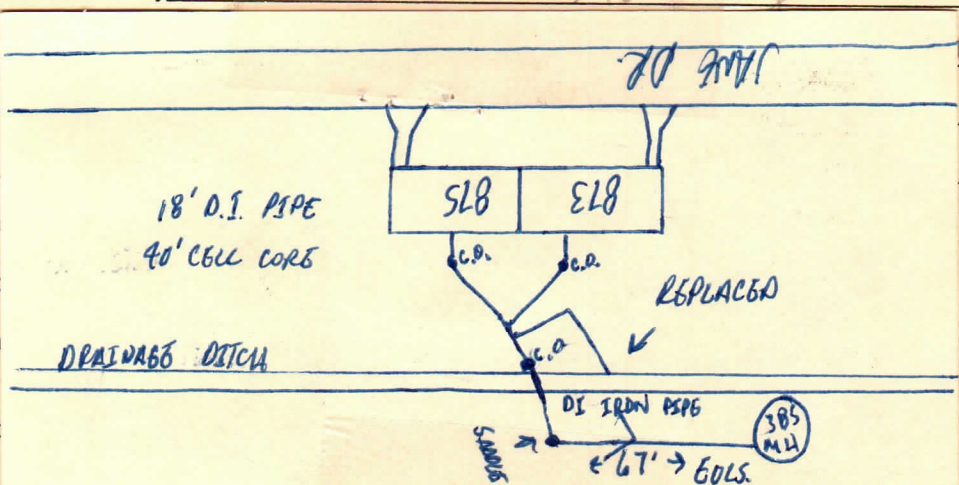 JANE DR.
18' D.I. PIPE
40' CELL CORE
875
873
C.O.
C.O.
REPLACED
DRAINAGE DITCH
C.O
DI IRON PIPE
SADDLE
67'
EOLS.
385
MH